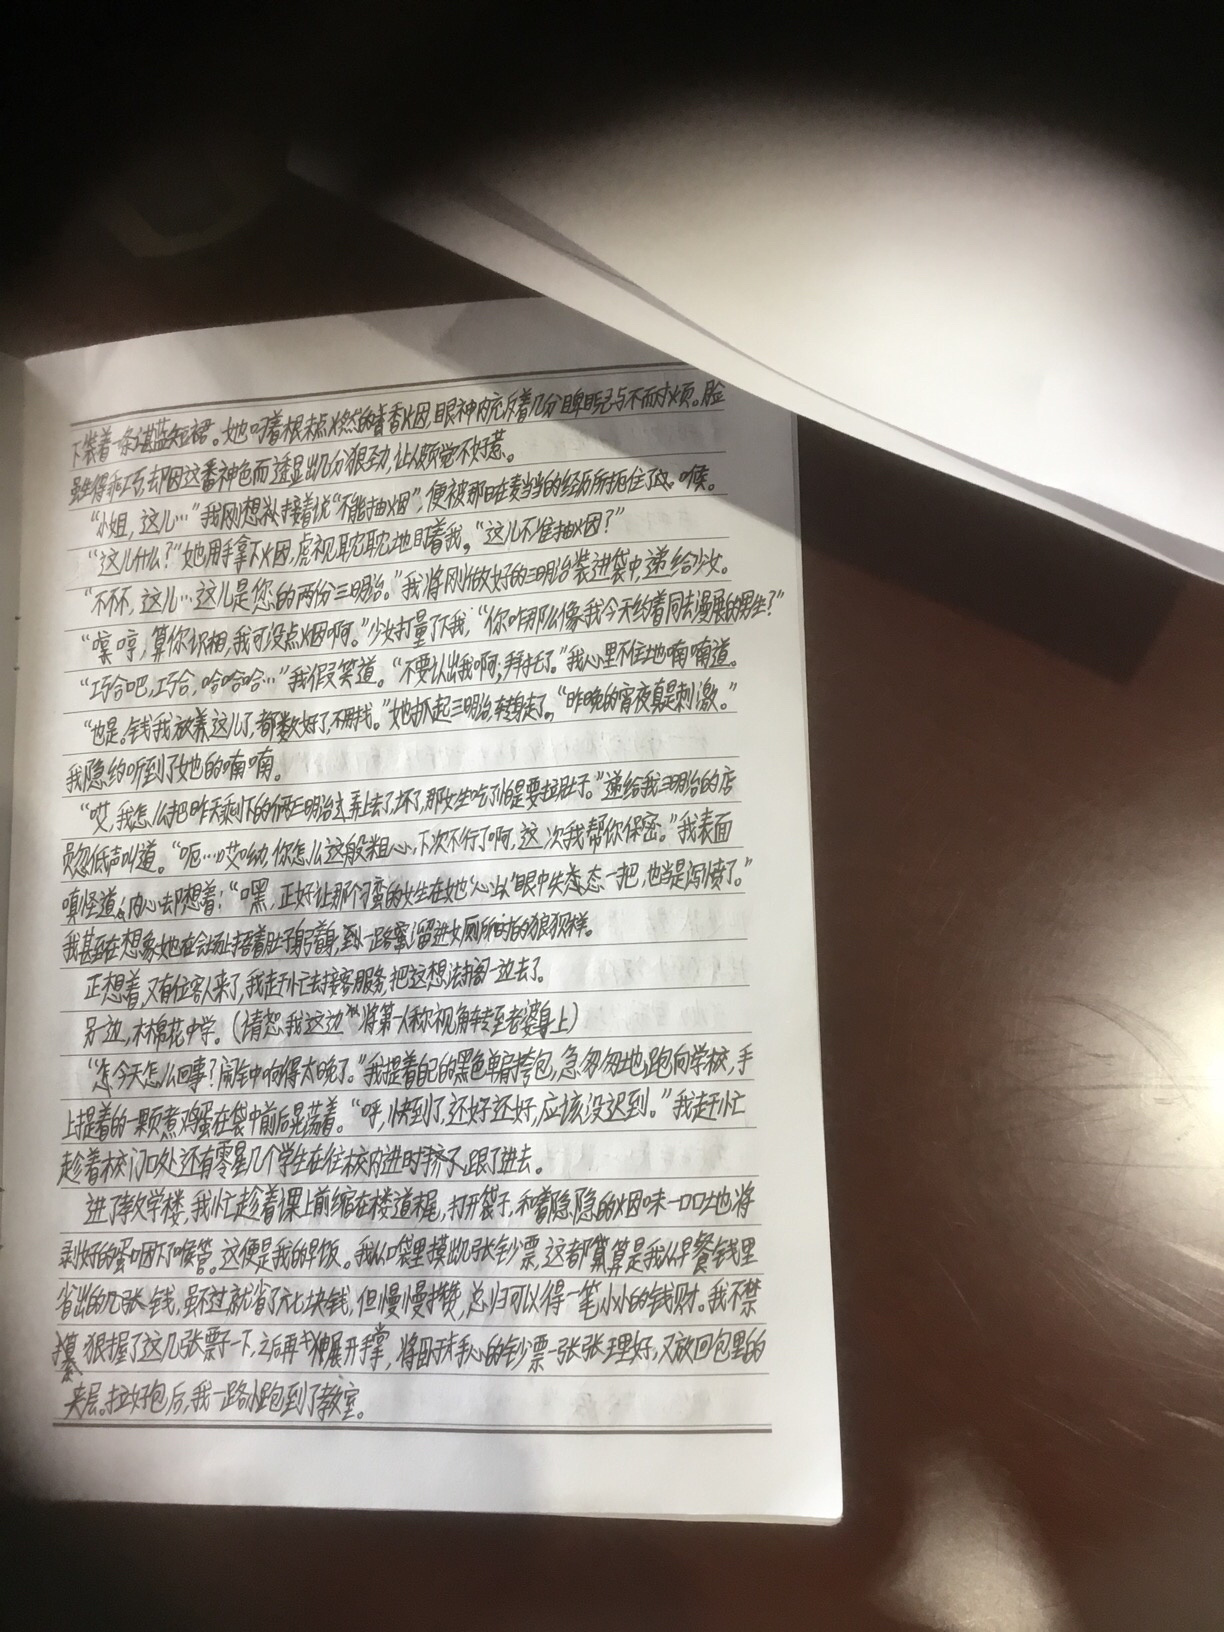 下装着一条湛蓝短裙。她叼着根未点燃的香烟,眼神内充斥着几分睥睨与不耐烦。脸
虽生得乖巧,却因这番神色而透显出几分狠劲,让人颇觉不好惹。
“小姐,这儿…”我刚想接着说“不能抽烟”,便被那日在麦当当的经历所扼住了喉。
“这儿什么?”她用手拿下火因,虎视眈眈地盯着我,“这儿不准抽烟?”
“不不,这儿…这儿是您的两份三明治。”我将刚做好的三明治装进袋中,递给少女。
“哼,算你识相,我可没点烟啊。”少女打量了下我,“你咋那么像我今天约着同去漫展的男生?”
“巧合吧,巧合,哈哈哈…”我假笑道。“不要认出我啊,拜托了。”我心里不住地喃喃道。
“也是。钱我放这儿了,都数好了,不用找。”她扒起三明治,转身走了,“昨晚的宵夜真是刺激。”
我隐约听到了她的喃喃。
“哎,我怎么把昨天剩下的俩三明治弄上去了,坏了,那女生吃了怕是要拉肚子。”递给我三明治的店
员忽低声叫道。“呃…哎呦,你怎么这般粗心,下次不行了啊,这次我帮你保密。”我表面
嗔怪道,内心却想着:“嘿,正好让那个刁蛮的女生在她眼中失态一把,也当是泻愤了。”
我甚至在想象她在会场上捂着肚子,躬着身,到一路溜进女厕所时的狼狈样。
正想着,又有位客人来了,我赶忙去接客服务,把这想法搁一边去了。
另边,木棉花中学。(请恕我这边将第一人称视角转至老婆身上)
“怎今天怎么回事?闹钟响得太晚了。”我提着自己的黑色单肩挎包,急匆匆地跑向学校,手
上提着的一颗煮鸡蛋在袋中前后晃荡着。“呼,快到了,还好还好,应该没迟到。”我赶忙
趁着校门口处还有零星几个学生在往校内进时挤了,跟了进去。
进了教学楼,我忙趁着课上前缩在楼道末尾,打开袋子,和着隐隐的烟味一口口地将
剥好的蛋咽下喉管。这便是我的早饭。我从口袋里摸出几张钞票,这都算是我从早餐钱里
省出的几张钱,虽不过就省了六七块钱,但慢慢攒,总归可以得一笔小小的钱财。我不禁
狠握了这几张票子一下,之后再伸展开手掌,将卧于手心的钞票一张张理好,又放回包里的
夹层。拉好包后,我一路小跑到了教室。